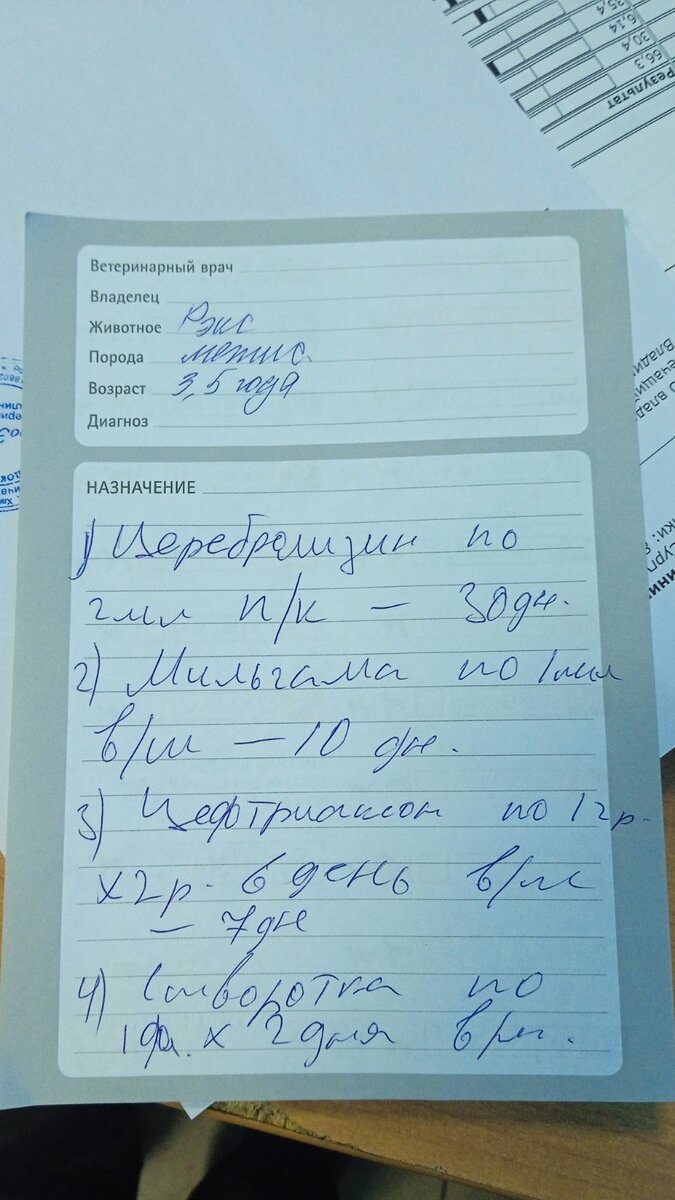 66,3
30,4
6,14
35,4
Результат
Ветеринарный врач
Владелец
Животное Рэкс
Порода метис.
Возраст 3,5 года
Диагноз
НАЗНАЧЕНИЕ
1) Церебролизин по
2мл п/к – 30дн.
2) Мильгама по 1мл
в/м – 10 дн.
3) Цефтриаксон по 1 гр.
х2р. в день в/м
– 7дн
4) Сыворотка по
1фл. х 2 дня в/м.